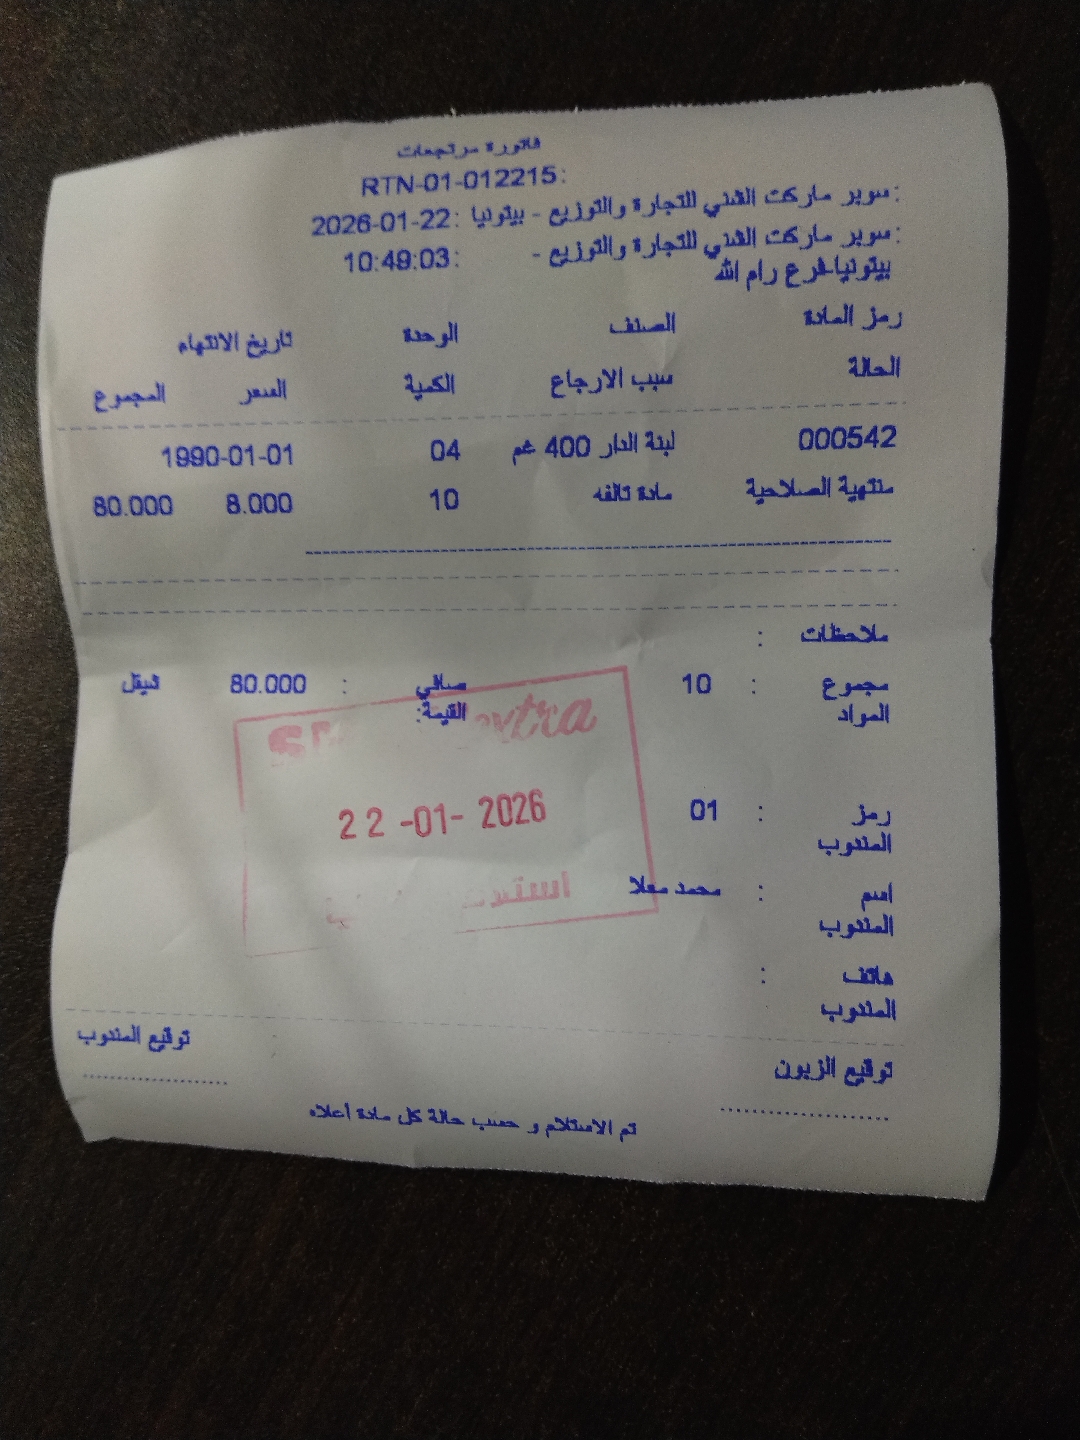 فاتورة مرتجعات
RTN-01-012215:
:سوبر ماركت الشني للتجارة والتوزيع - بيتونيا :2026-01-22
:سوبر ماركت الشني للتجارة والتوزيع - :10:49:03
بيتونيا-فرع رام الله
رمز المادة الصنف الوحدة تاريخ الانتهاء
الحالة سبب الارجاع الكمية السعر المجموع
000542 لبنة الدار 400 غم 04 1990-01-01
منتهية الصلاحية مادة تالفه 10 8.000 80.000
ملاحظات :
مجموع المواد : 10 صافي القيمة: : 80.000 شيقل
extra
22 -01- 2026
رمز المندوب : 01
اسم المندوب : محمد معلا
هاتف المندوب :
توقيع الزبون توقيع المندوب
تم الاستلام و حسب حالة كل مادة أعلاه